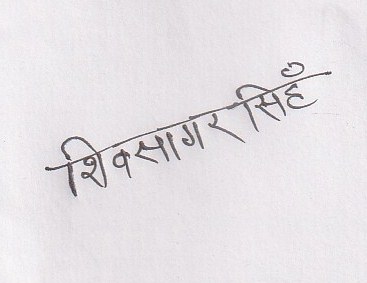 शिवसागर सिहँ